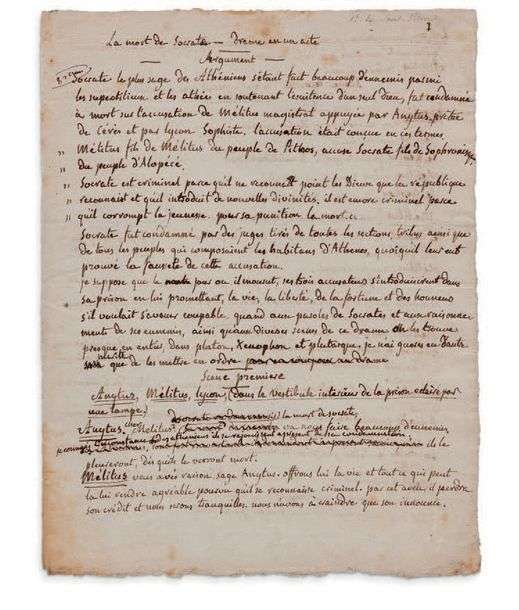 3
La mort de Socrate — Drame en un acte
Argument
Socrate le plus sage des Athéniens s'étant fait beaucoup d'ennemis parmi
les superstitieux et les athées en soutenant l'existence d'un seul Dieu, fut condamné
à mort sur l'accusation de Mélitus magistrat appuyée par Anytus, prêtre
de Cérès et par Lycon Sophiste. l'accusation était conçue en ces termes,
" Mélitus fils de Mélitus du peuple de Pithos, accuse Socrate fils de Sophronisque
" du peuple d'Alopécé.
" Socrate est criminel parce qu'il ne reconnait point les Dieux que la république
" reconnait et qu'il introduit de nouvelles divinités. il est encore criminel parce
" qu'il corrompt la jeunesse. pour sa punition la mort
Socrate fut condamné par des juges tirés de toutes les sections ainsi que
de tous les peuples qui composaient les habitans d'Athenes, quoiqu'il leur eut
prouvé la fausseté de cette accusation.
je suppose que le jour ou il mourut, ses trois accusateurs s'introduisirent dans
sa prison en lui promettant, la vie, la liberté, de la fortune et des honneurs
s'il voulait s'avouer coupable. quand aux paroles de Socrates et aux raisonne
ment de ses ennemis, ainsi qu'aux diverses scènes de ce drame on les trouve
presque, en entier, dans platon, Xenophon et plutarque, je n'ai gueres eu d'autre
que de les mettre en ordre
Scene premiere
Anytus, Mélitus, Lycon, (dans le vestibule intérieur de la prison eclairé par
une lampe)
la mort de Socrate,
Anytus, cher Mélitus, va nous faire beaucoup d'ennemis
de le
pleureront, dès qu'ils le verront mort.
Mélitus vous avés raison sage Anytus. offrons lui la vie et tout ce qui peut
la lui rendre agréable pourvu qu'il se reconnaisse criminel. par cet aveu il perdra
son crédit et nous serons tranquilles. nous n'avons à craindre que son innocence.